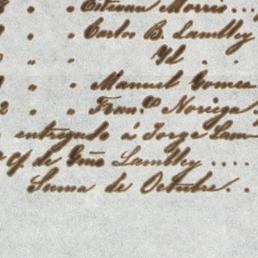 " " Estevan Morris ...
" " Carlos B. Lambley
" " Yd . .
" " Manuel Gomes
2 " " Fran.co Noriega
entregado á Jorge Lam
cf. de Gmo Lambley .....
Suma de Octubre . .